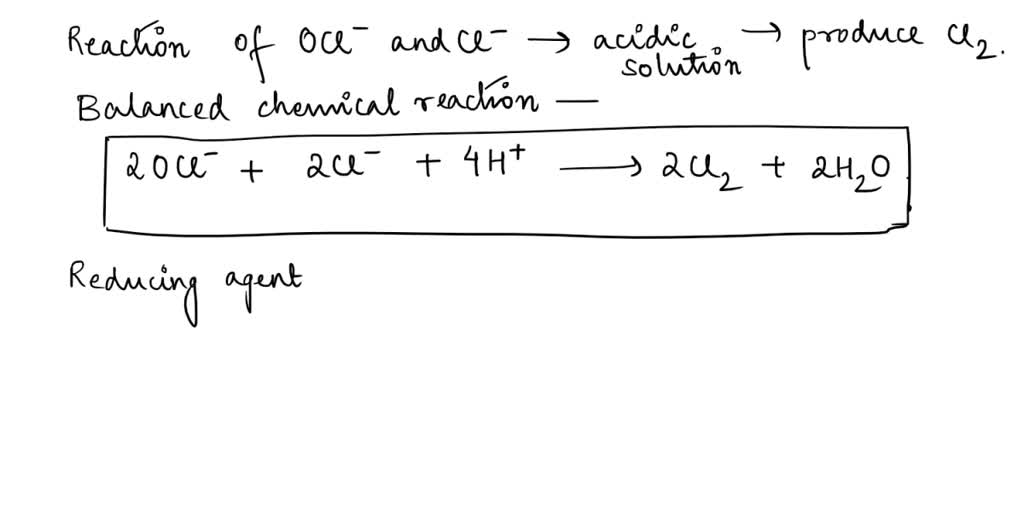 Reaction of OCl⁻ and Cl⁻ → acidic solution → produce Cl₂.
Balanced chemical reaction —
2OCl⁻ + 2Cl⁻ + 4H⁺ ⟶ 2Cl₂ + 2H₂O
Reducing agent